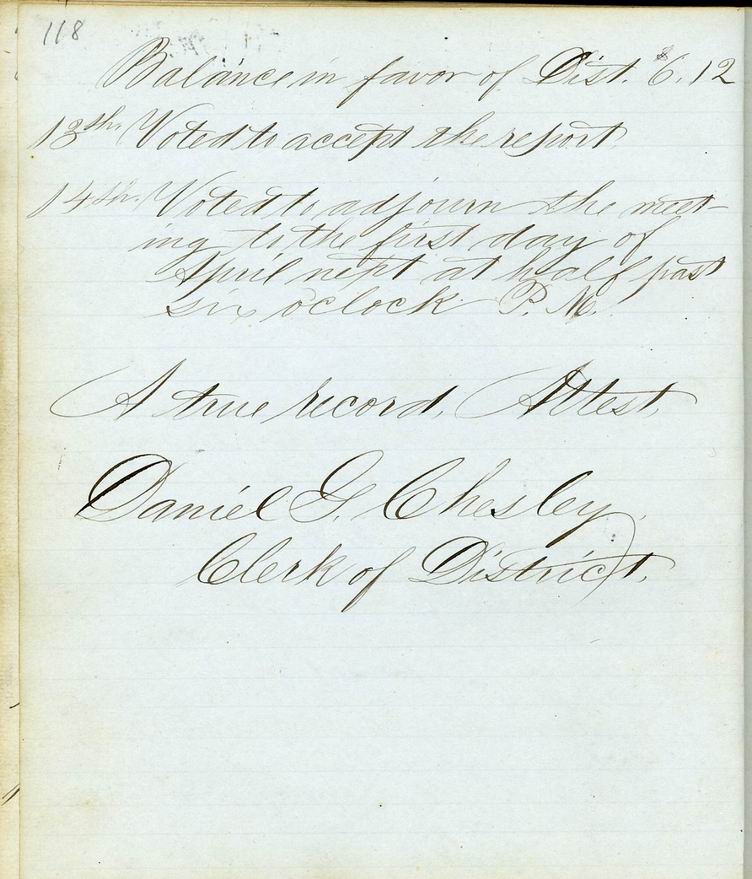 118
Balance in favor of Dist. $6.12
13th. Voted to accept the report
14th. Voted to adjourn the meet-
ing to the first day of
April next at half past
six o'clock P. M.
A true record, Attest,
Daniel G. Chesley,
Clerk of District.